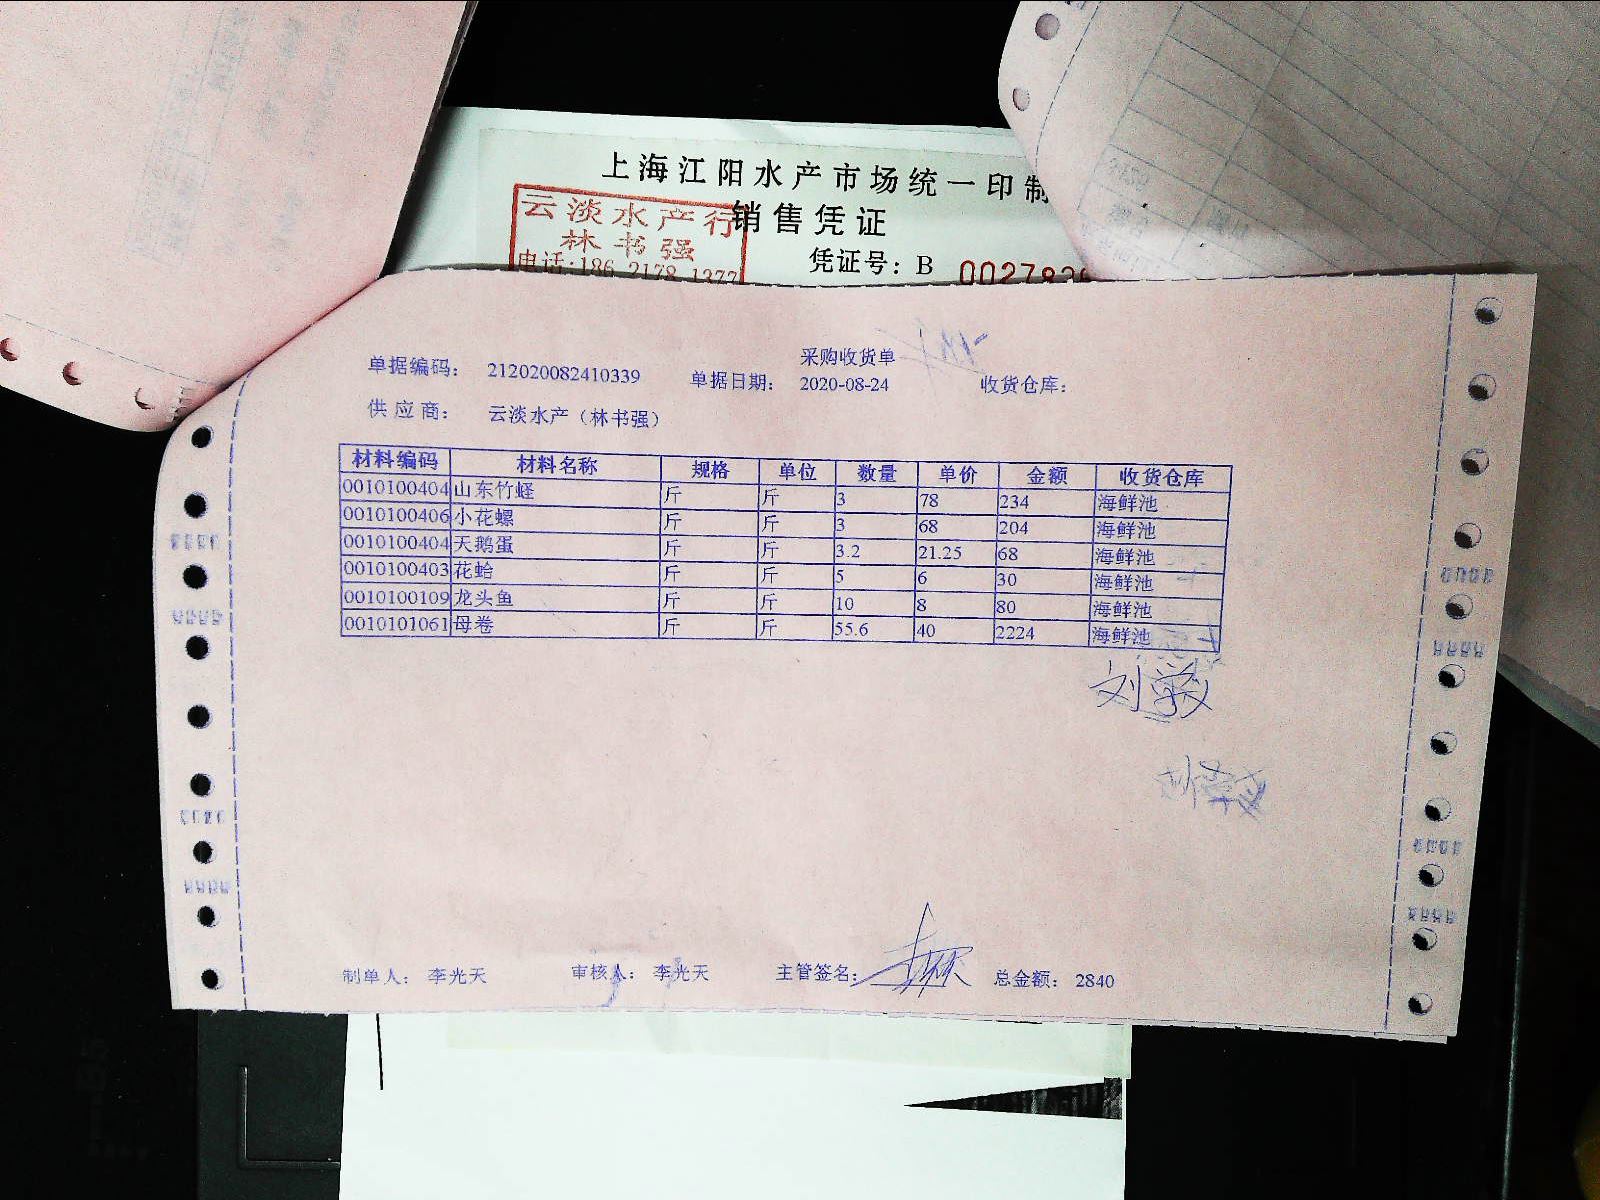 上海江阳水产市场统一印制
云淡水产行 销售凭证
林书强
电话:186 2178 1377
凭证号：B 0027836
采购收货单
单据编码： 212020082410339 单据日期： 2020-08-24 收货仓库：
供应商： 云淡水产（林书强）
材料编码 材料名称 规格 单位 数量 单价 金额 收货仓库
0010100404 山东竹蛏 斤 斤 3 78 234 海鲜池
0010100406 小花螺 斤 斤 3 68 204 海鲜池
0010100404 天鹅蛋 斤 斤 3.2 21.25 68 海鲜池
0010100403 花蛤 斤 斤 5 6 30 海鲜池
0010100109 龙头鱼 斤 斤 10 8 80 海鲜池
0010101061 母卷 斤 斤 55.6 40 2224 海鲜池
制单人： 李光天 审核人： 李光天 主管签名： 总金额： 2840